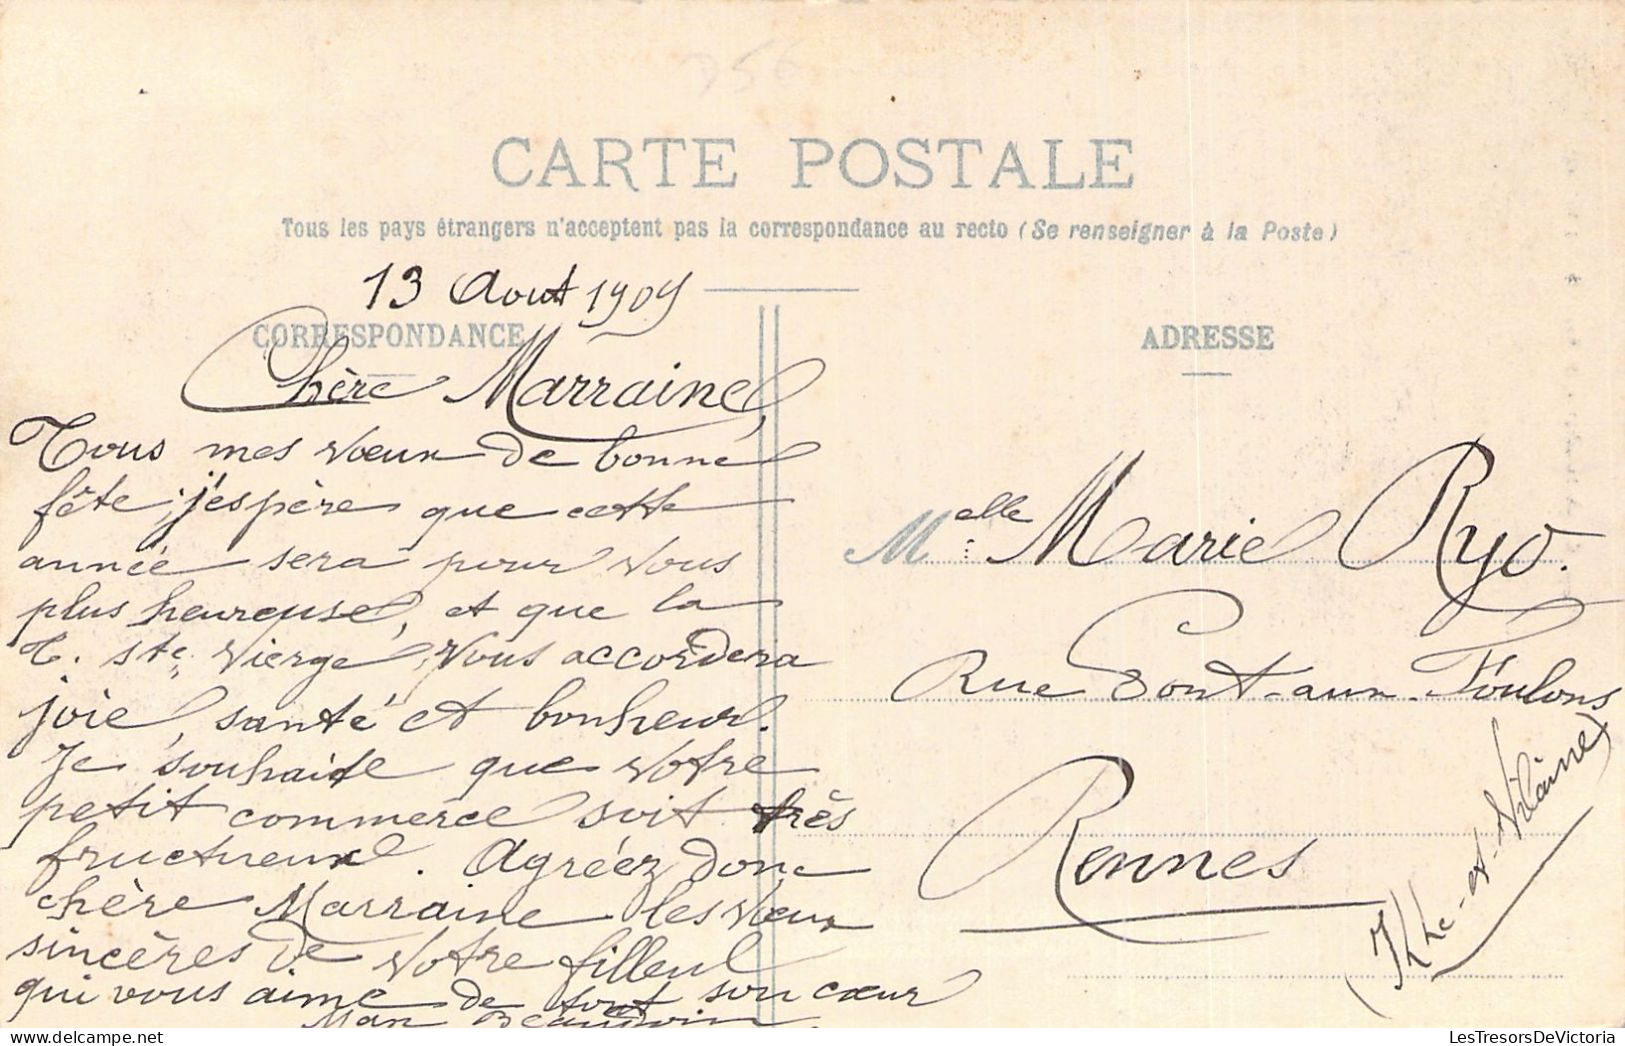 CARTE POSTALE
Tous les pays étrangers n'acceptent pas la correspondance au recto (Se renseigner à la Poste)
13 Aout 1909
CORRESPONDANCE
Chère Marraine,
Tous mes vœux de bonne
fête; j'espère que cette
année sera pour vous
plus heureuse, et que la
T. Ste Vierge vous accordera
joie, santé et bonheur.
Je souhaite que votre
petit commerce soit très
fructueux. Agréez donc
chère Marraine les vœux
sincères de votre filleul
qui vous aime de tout son cœur
Beaudoin
ADRESSE
Melle Marie Ryo.
Rue Pont-aux-Foulons
Rennes
(Ille-et-Vilaine)
LesTresorsDeVictoria